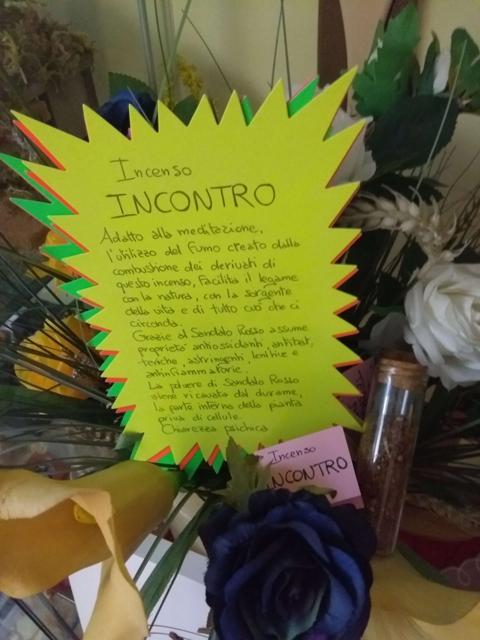 Incenso
INCONTRO
Adatto alla meditazione,
l'utilizzo del fumo creato dalla
combustione dei derivati di
questo incenso, facilita il legame
con la natura, con la sorgente
della vita e di tutto cuo' che ci
circonda.
Grazie al Sandalo Rosso assume
proprietà antiossidanti, antibat,
teriche, astringenti, lenitive e
antinfiammatorie.
La polvere di Sandalo Rosso
viene ricavata dal durame,
la parte interna della pianta
priva di cellule.
Chiarezza psichica
Incenso
INCONTRO